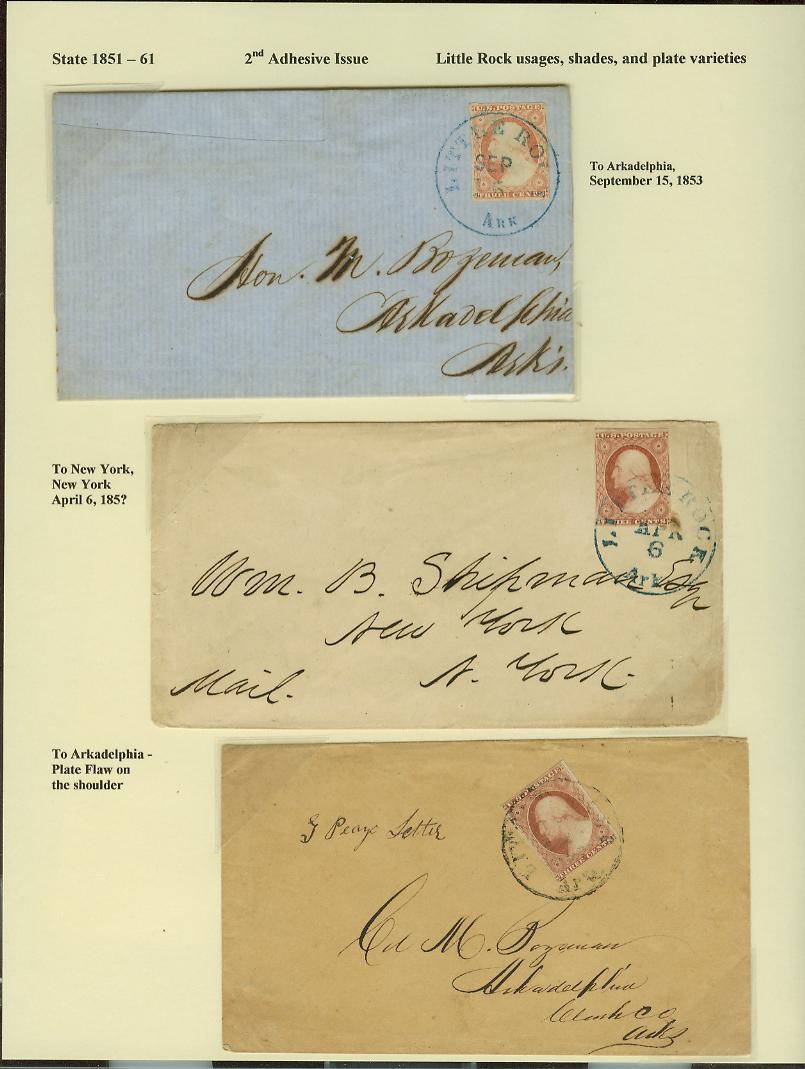 State 1851 – 61 2nd Adhesive Issue Little Rock usages, shades, and plate varieties
U.S. POSTAGE
THREE CENTS
LITTLE RO
SEP
Ark
To Arkadelphia,
September 15, 1853
Hon. M. Bozeman,
Arkadelphia
Arks.
To New York,
New York
April 6, 185?
U.S. POSTAGE
THREE CENTS
LITTLE ROCK
APR
6
Ark
Wm. B. Shipman Esq
New York
Mail. N. York.
To Arkadelphia -
Plate Flaw on
the shoulder
U.S. POSTAGE
THREE CENTS
Letter
Col M. Bozeman
Arkadelphia
Clark Co
Arks